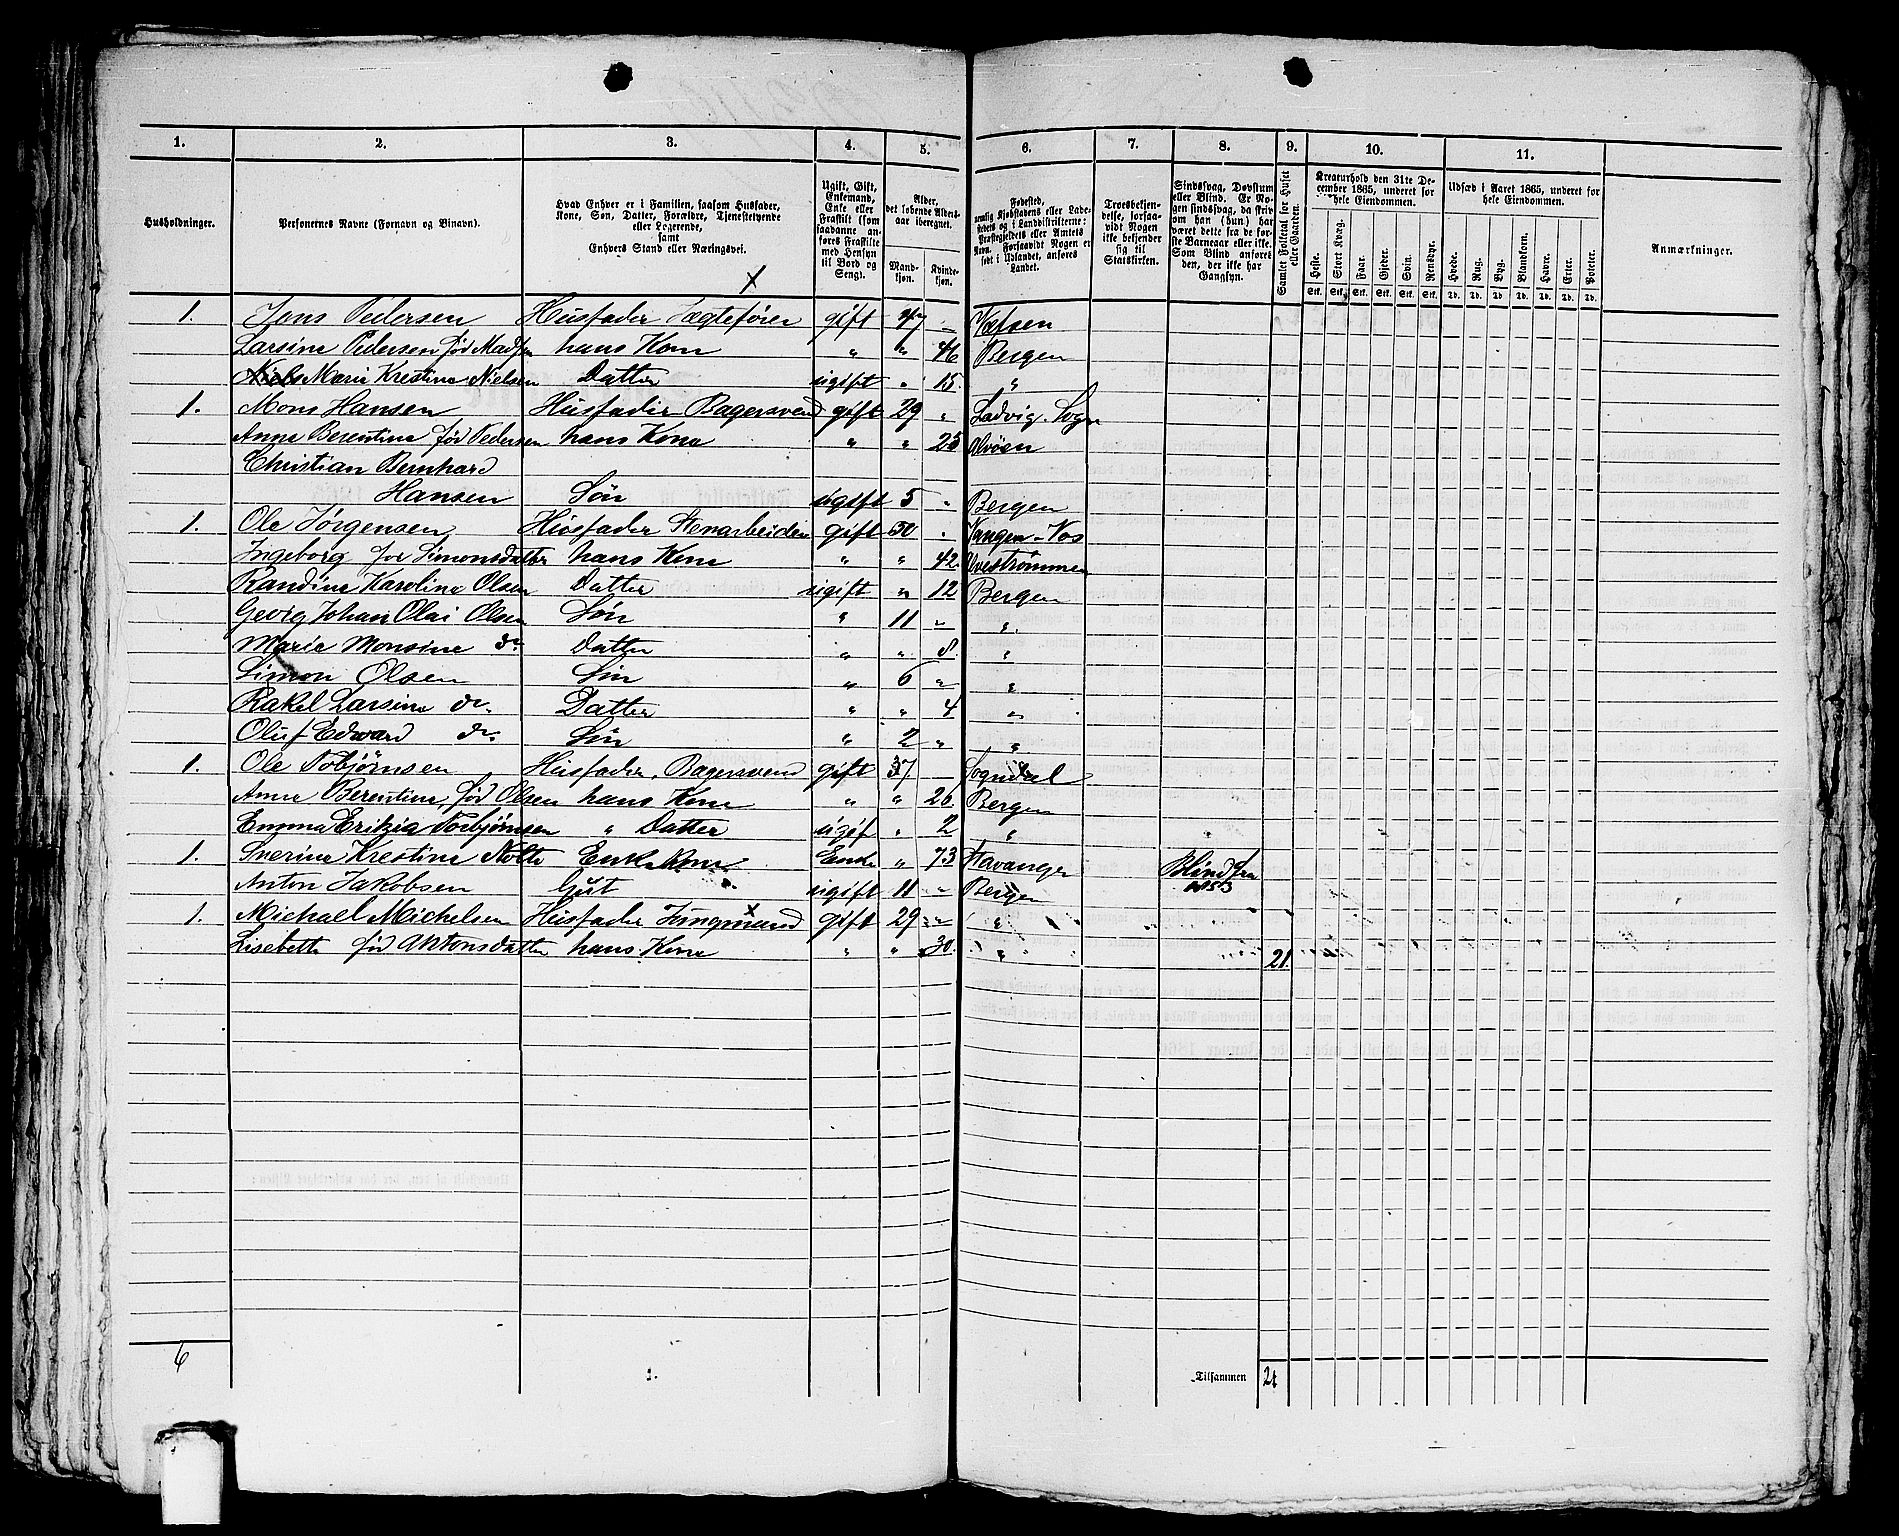 1. 2. 3. 4. 5. 6. 7. 8. 9. 10. 11.
Husholdninger.
Personernes Navne (Fornavn og Binavn).
Hvad Enhver er i Familien, saasom Husfader, Kone, Søn, Datter, Forældre, Tjenestetyende eller Logerende, samt Enhvers Stand eller Næringsvei.
Ugift, Gift, Enkemand, Enke eller Fraskilt (som saadanne anføres Fraskilte med Hensyn til Bord og Seng).
Alder, det løbende Alders-aar iberegnet.
Mandkjøn. Kvindekjøn.
Fødested, nemlig Kjøbstadens eller Ladestedets og i Landdistrikterne: Præstegjeldets eller Amtets Navn. Forsaavidt Nogen er født i Udlandet, anføres Landet.
Troesbekjendelse, forsaavidt Nogen ikke bekjender sig til Statskirken.
Sindssvag, Døvstum eller Blind. Er Nogen sindssvag, da skrives om han (hun) har været dette fra de første Barneaar eller ikke. Som Blind anføres den, der ikke har Gangsyn.
Samlet Folketal for Huset eller Gaarden.
Kreaturhold den 31te December 1865, underet for hele Eiendommen.
Heste. Stort Kvæg. Faar. Gjeder. Svin. Rensdyr.
Udsæd i Aaret 1865, underet for hele Eiendommen.
Hvede. Rug. Byg. Blandkorn. Havre. Erter. Poteter.
Anmærkninger.
Stk. Stk. Stk. Stk. Stk. Stk. Td. Td. Td. Td. Td. Td. Td.
1. Jens Pedersen Husfader Lægtefører gift 47 „ Vefsen
Larsine Pedersen fød Madsen hans Kone „ „ 46 Bergen
Niels Marie Krestine Nielsen Datter ugift „ 15. „
1. Mons Hansen Husfader Bagersvend gift 29 „ Ladvig. Sogn
Anne Berentine fød Pedersen hans Kone „ „ 25 Alvøen
Christian Bernhard
Hansen Søn ugift 5 „ Bergen
1. Ole Jørgensen Husfader Stenarbeider gift 50 „ Vangen-Vos
Ingeborg fød Simonsdatter hans Kone „ „ 42. Ovestrømmen
Randine Karoline Olsen Datter ugift „ 12 Bergen
Georg Johan Olai Olsen Søn „ 11 „ „
Marie Monsine do Datter „ „ 8. „
Simon Olsen Søn „ 6 „ „
Rakel Larsine do Datter „ „ 4 „
Oluf Edward do Søn „ 2 „ „
1. Ole Tobjørnsen Husfader. Bagersvend gift 37 Sogndal
Anne Berentine, fød Olsen hans Kone „ „ 26. Bergen
Emma Torbjørnsen „ Datter ugift „ 2 „
1. Severine Krestine Nolte Enkekone Enke „ 73 Stavanger Blind fra 1853
Anton Jakobsen Gut ugift 11 „ Bergen
1. Michael Michelsen Husfader gift 29 „ „
Lisebeth fød Antonsdatter hans Kone „ „ 30. „ 21.
6 Tilsammen 21